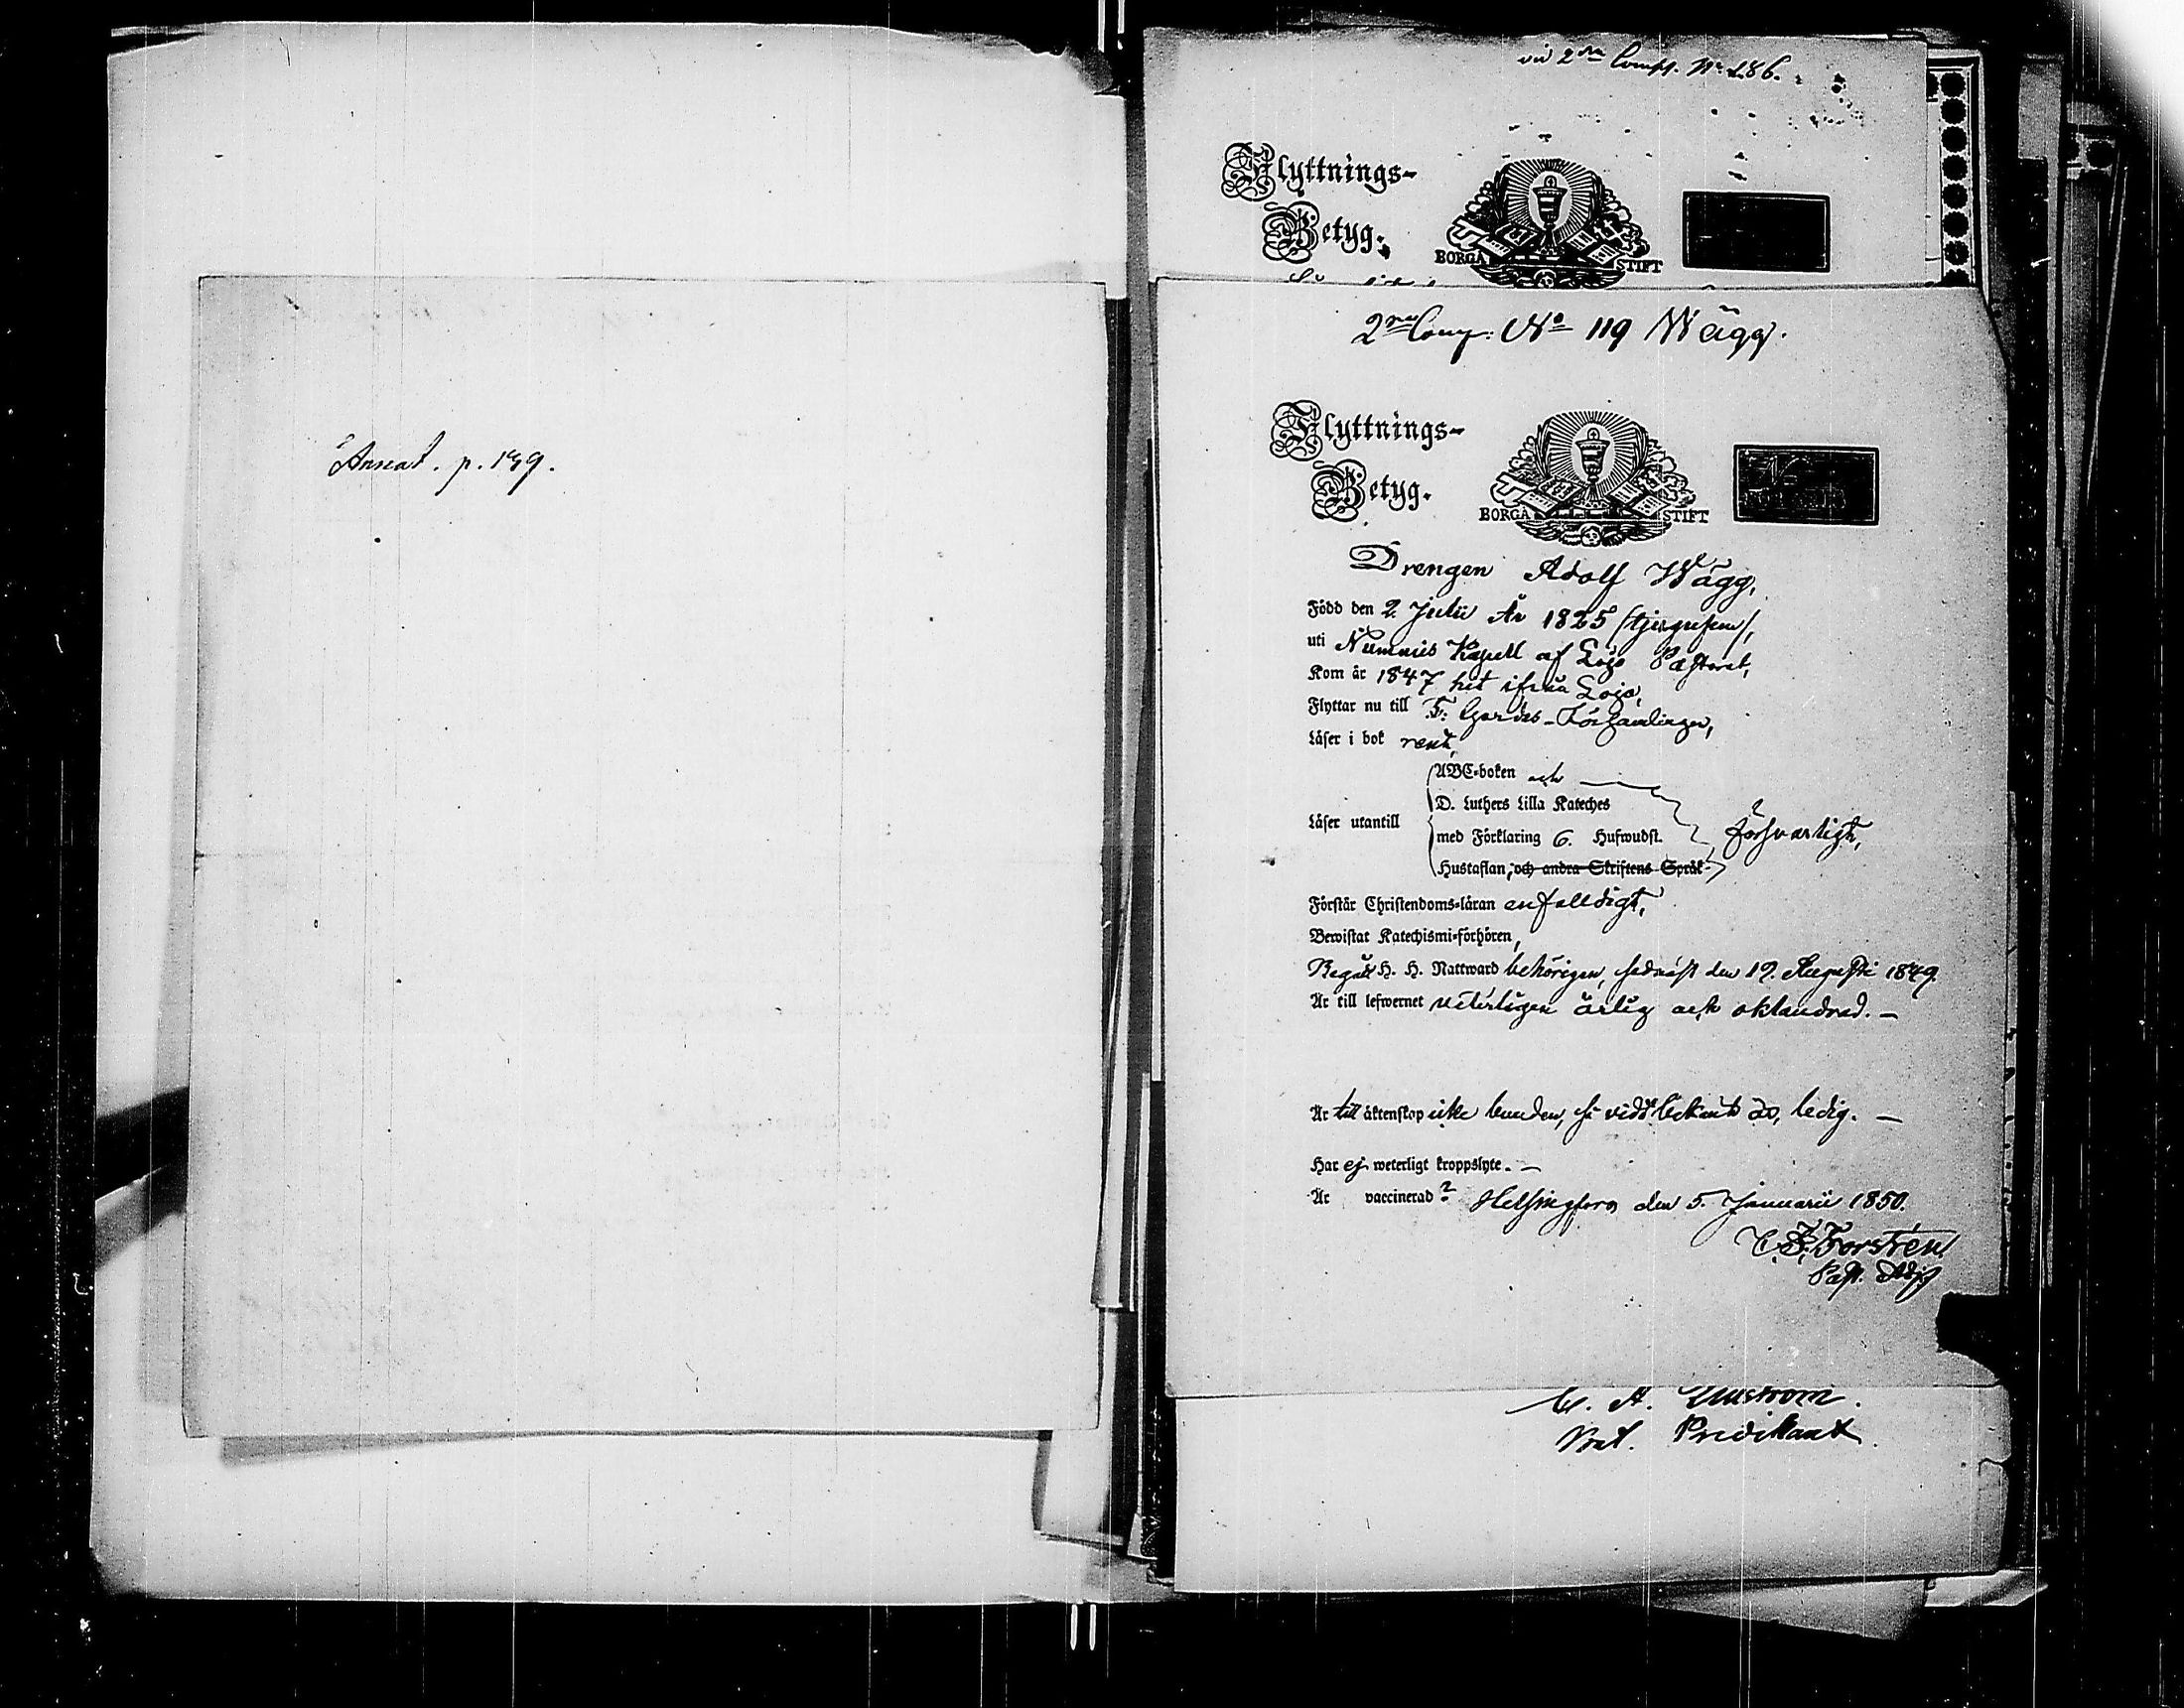 Anseat. p. 149.
vid 2dra Comp. No 286.
Flyttnings-
Betyg.
BORGÅ STIFT
2ra Comp: No 119 Wägg.
Flyttnings-
Betyg.
BORGÅ STIFT
Drengen Adolf Wägg,
Född den 2 Julii År 1825 /tjugufem/,
uti Nummis Kapell af Lojo Pastorat,
Kom år 1847 hit ifrån Lojo,
Flyttar nu till F: Gardes-Församlingen,
Läser i bok rent,
ABC-boken och
D. Luthers Lilla Kateches
Läser utantill med Förklaring 6. Hufwudst. försvarligt,
Hustaflan, och andra Skriftens Språk
Förstår Christendoms-läran enfalldigt,
Bewistat Katechismi-förhören,
Begått H. H. Nattward behörigen, sednast den 19. Augusti 1849.
Är till lefwernet veterligen ärlig och oklandrad. —
Är till äktenskap icke bunden, så vidt bekant är, ledig. —
Har ej weterligt kroppslyte. —
Är vaccinerad? Helsingfors den 5. Januarii 1850.
Forstén
Past. Adj.
C. A.
Predikant